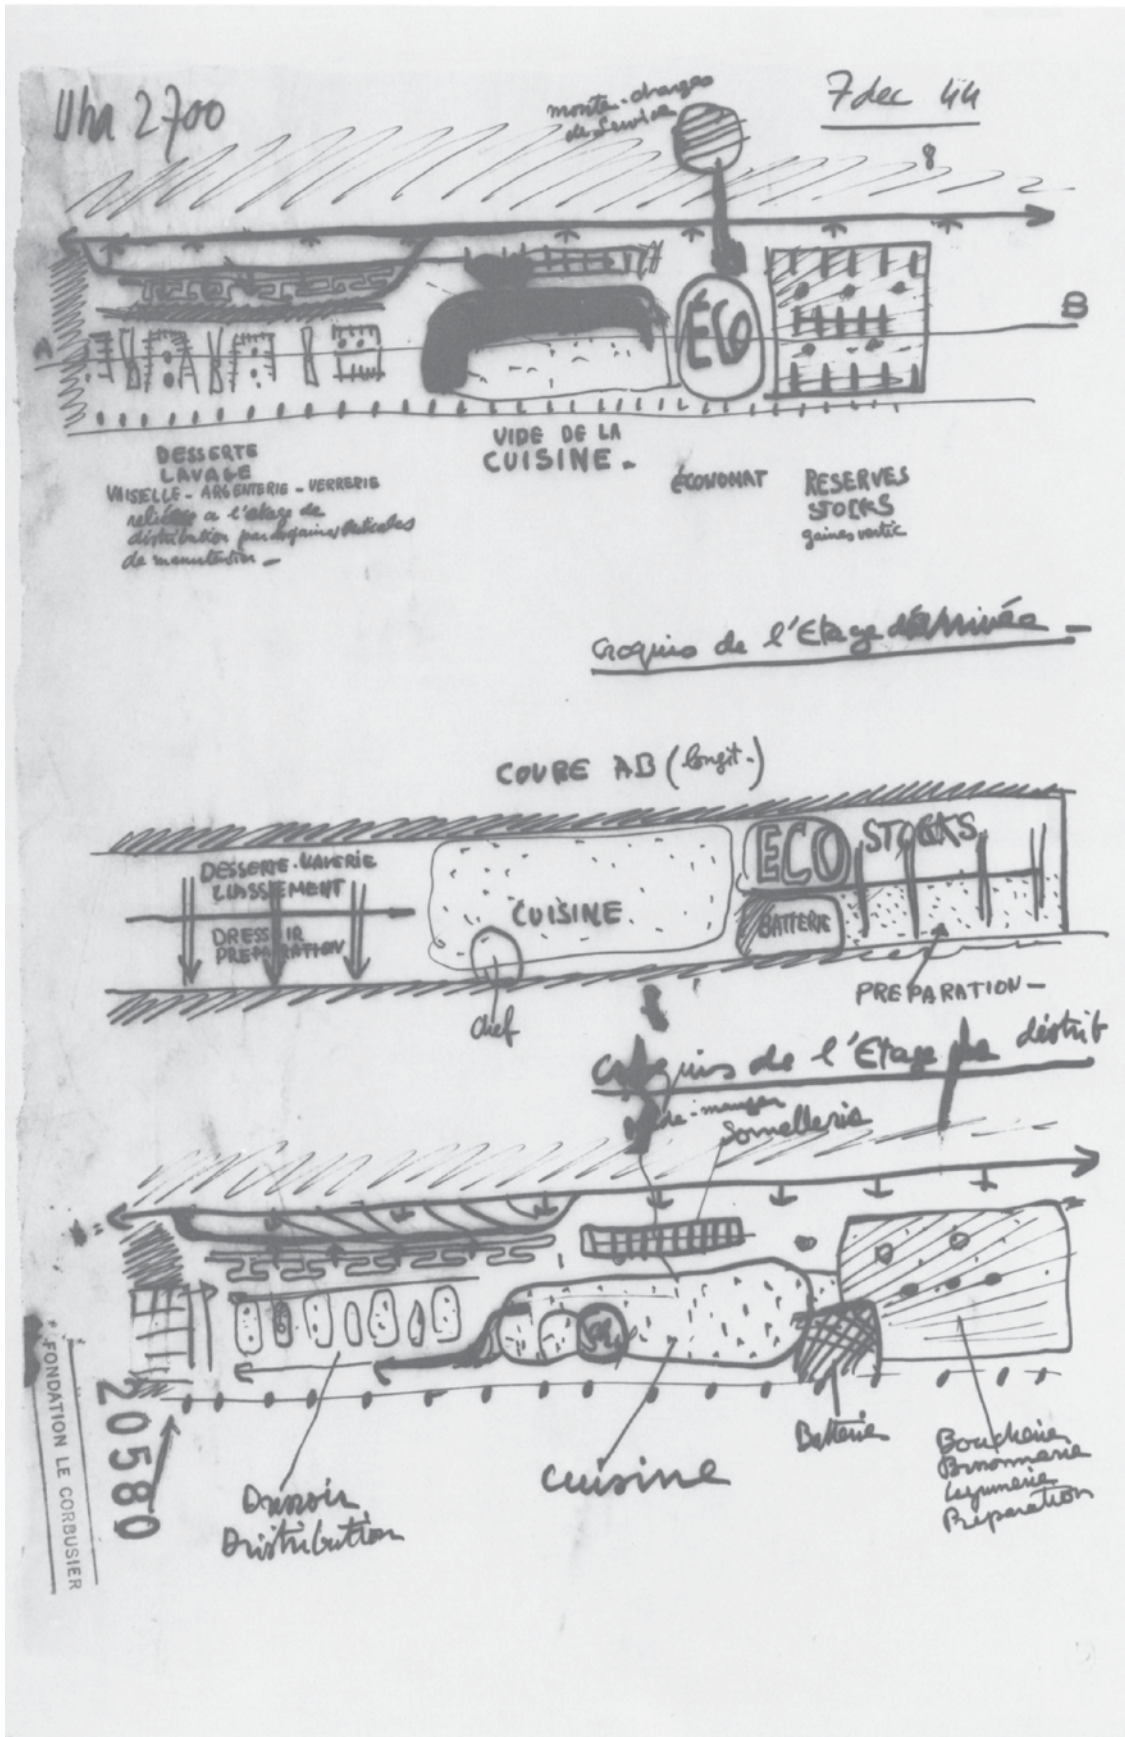 Uha 2700
monte-charges
de Service
7 dec 44
8
ÉCO
A
B
DESSERTE
LAVAGE
VAISELLE - ARGENTERIE - VERRERIE
reliée a l'etage de
distribution par gaines verticales
de manutention -
VIDE DE LA
CUISINE -
ÉCONOMAT
RESERVES
STOCKS
gaines vertic
Croquis de l'Etage d'arrivée -
COUPE AB (longit.)
DESSERTE - LAVERIE
CLASSEMENT
DRESSOIR
PREPARATION
CUISINE
ECO
STOCKS
BATTERIE
chef
PREPARATION -
Croquis de l'Etage de distrib
garde-manger
Somellerie
Dressoir
Distribution
cuisine
Batterie
Boucherie
Legumerie
Préparation
FONDATION LE CORBUSIER
20580